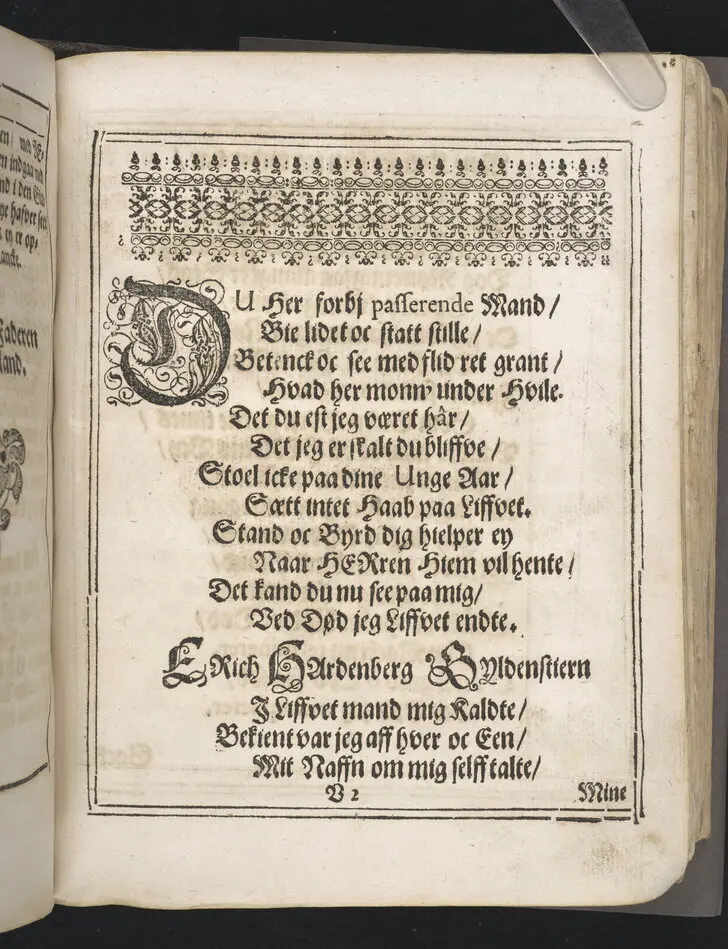 en / med E-
en indgaa met
nd i den
ye hafver
t ey er op-
anckt.
Faderen
land.
DU Her forbj passerende Mand /
Bie lidet oc statt stille /
Betenck oc see med flid ret grant /
Hvad her monn under Hvile.
Det du est jeg været hâr /
Det jeg er skalt du bliffve /
Stoel icke paa dine Unge Aar /
Sætt intet Haab paa Liffvet.
Stand oc Byrd dig hielper ey
Naar HERren Hiem vil hente /
Det kand du nu see paa mig /
Ved Død jeg Liffvet endte.
ERich HArdenberg Gyldenstiern
I Liffvet mand mig Kaldte /
Bekient var jeg aff hver oc Een /
Mit Naffn om mig selff talte /
V 2 Mine